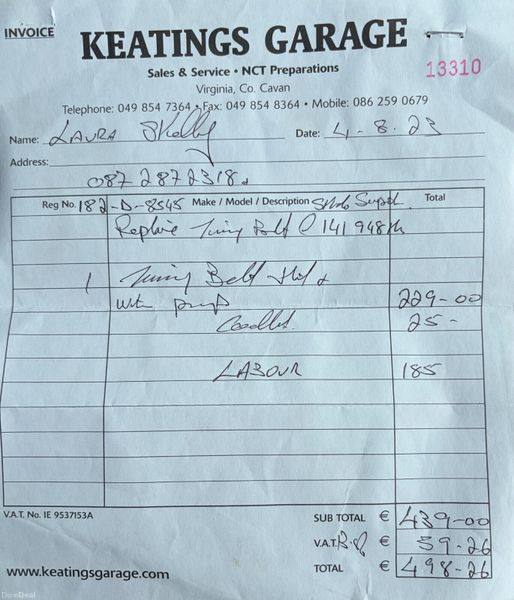 INVOICE
KEATINGS GARAGE
13310
Sales & Service • NCT Preparations
Virginia, Co. Cavan
Telephone: 049 854 7364 • Fax: 049 854 8364 • Mobile: 086 259 0679
Name: LAURA Skelly Date: 4-8.23
Address:
087 2872318
Reg No. 182-D-8545 Make / Model / Description Skoda Superb Total
Replace Timing Belt @ 141 948 km
1 Timing Belt &
Water pump 229-00
Coolant 25-
LABOUR 185
V.A.T. No. IE 9537153A
SUB TOTAL € 439-00
V.A.T. € 59-26
TOTAL € 498-26
www.keatingsgarage.com
DoneDeal